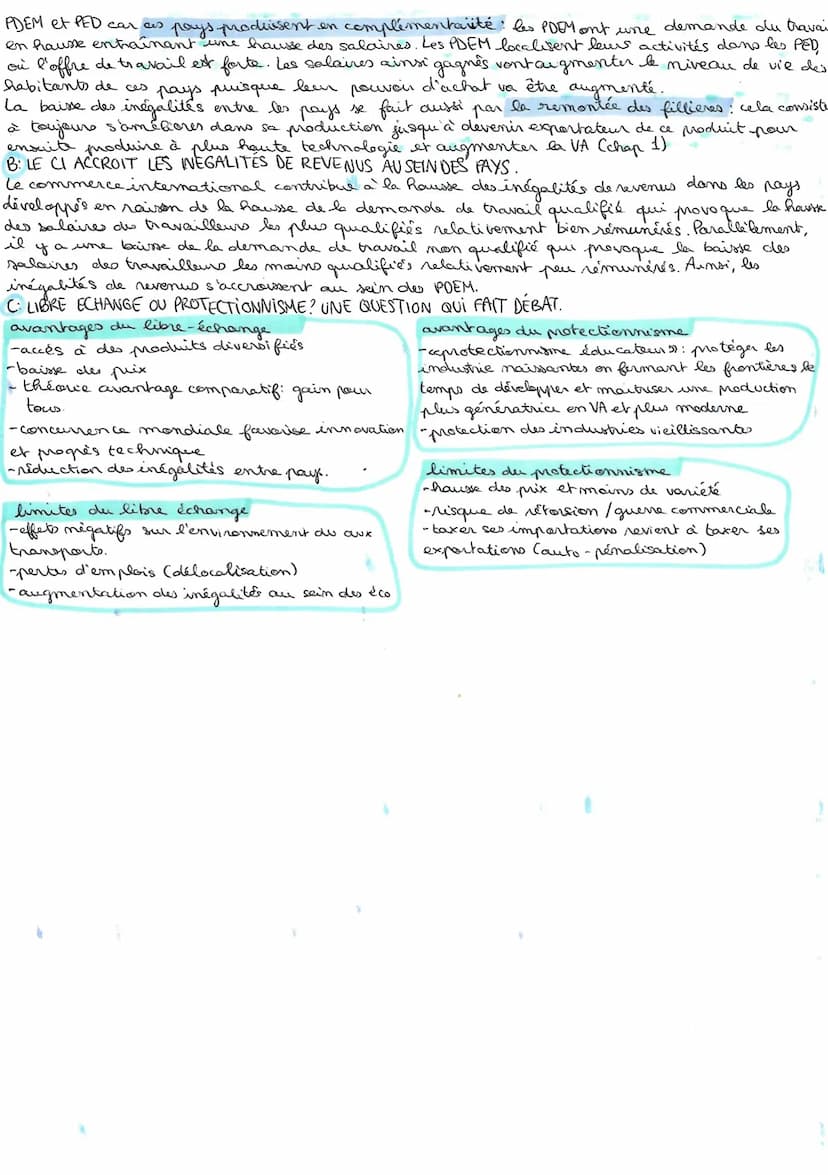 PDEM et PED car ces pays produisent en complémentarité : les PDEM ont une demande du travai
en hausse entraînant une hausse des salaires. Les PDEM localisent leurs activités dans les PED,
où l'offre de travail est forte. Les salaires ainsi gagnés vont augmenter le niveau de vie des
habitants de ces pays puisque leur pouvoir d'achat va être augmenté.
La baisse des inégalités entre les pays se fait aussi par la remontée des fillieres : cela consiste
à toujours s'améliorer dans sa production jusqu'à devenir exportateur de ce produit pour
ensuite produire à plus haute technologie et augmenter la VA (chap 1)
B: LE CI ACCROIT LES INEGALITÉS DE REVENUS AU SEIN DES PAYS.
Le commerce international contribue à la hausse des inégalités de revenus dans les pays
développés en raison de la hausse de la demande de travail qualifié qui provoque la hausse
des salaires des travailleurs les plus qualifiés relativement bien rémunérés. Parallèlement,
il y a une baisse de la demande de travail non qualifié qui provoque la baisse des
salaires des travailleurs les moins qualifiés relativement peu rémunérés. Ainsi, les
inégalités de revenus s'accroissent au sein des PDEM.
C: LIBRE ECHANGE OU PROTECTIONNISME? UNE QUESTION QUI FAIT DÉBAT.
avantages du libre-échange
-accès à des produits diversifiés
-baisse des prix
- théorie avantage comparatif: gain pour
tous.
-concurrence mondiale favorise innovation
et progrès technique
-réduction des inégalités entre pays.
limites du libre échange
-effets négatifs sur l'environnement du aux
transports.
-pertes d'emplois (délocalisation)
-augmentation des inégalités au sein des éco
avantages du protectionnisme
-«protectionnisme éducateur»: protéger les
industrie naissantes en fermant les frontières le
temps de développer et maitriser une production
plus génératrice en VA et plus moderne
-protection des industries vieillissantes
limites du protectionnisme
-hausse des prix et moins de variété
-risque de rétorsion / guerre commerciale
-taxer ses importations revient à taxer ses
exportations (auto-pénalisation)